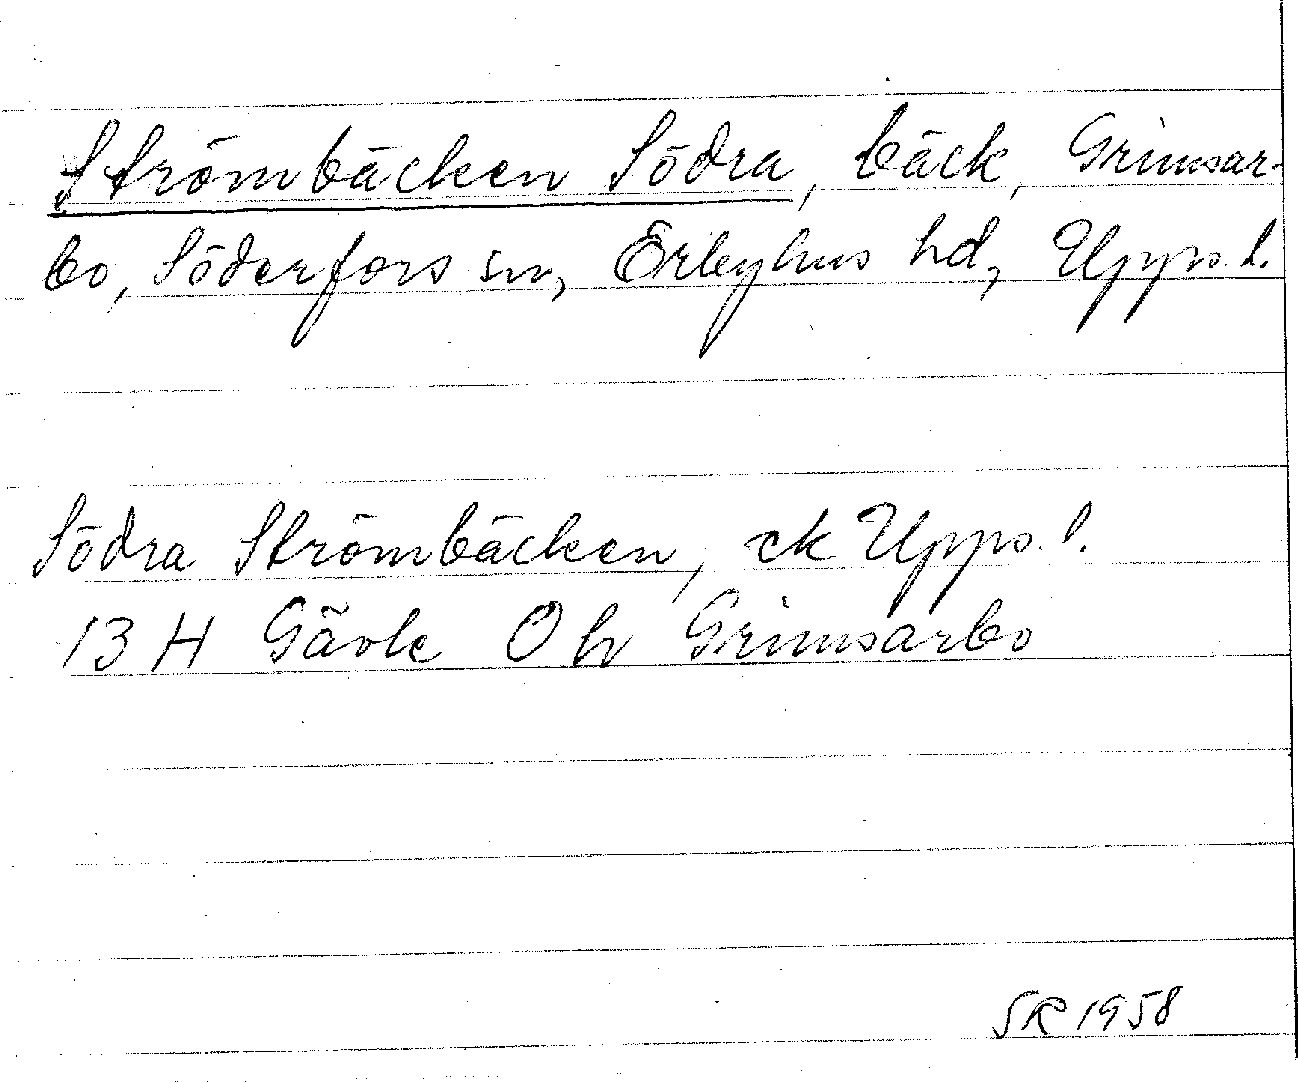 Strömbäcken Södra, bäck, Grimsar-
bo, Söderfors sn, Örbyhus hd, Upps. l.
Södra Strömbäcken, ek Upps. l.
13 H Gävle Oh Grimsarbo
SR 1958